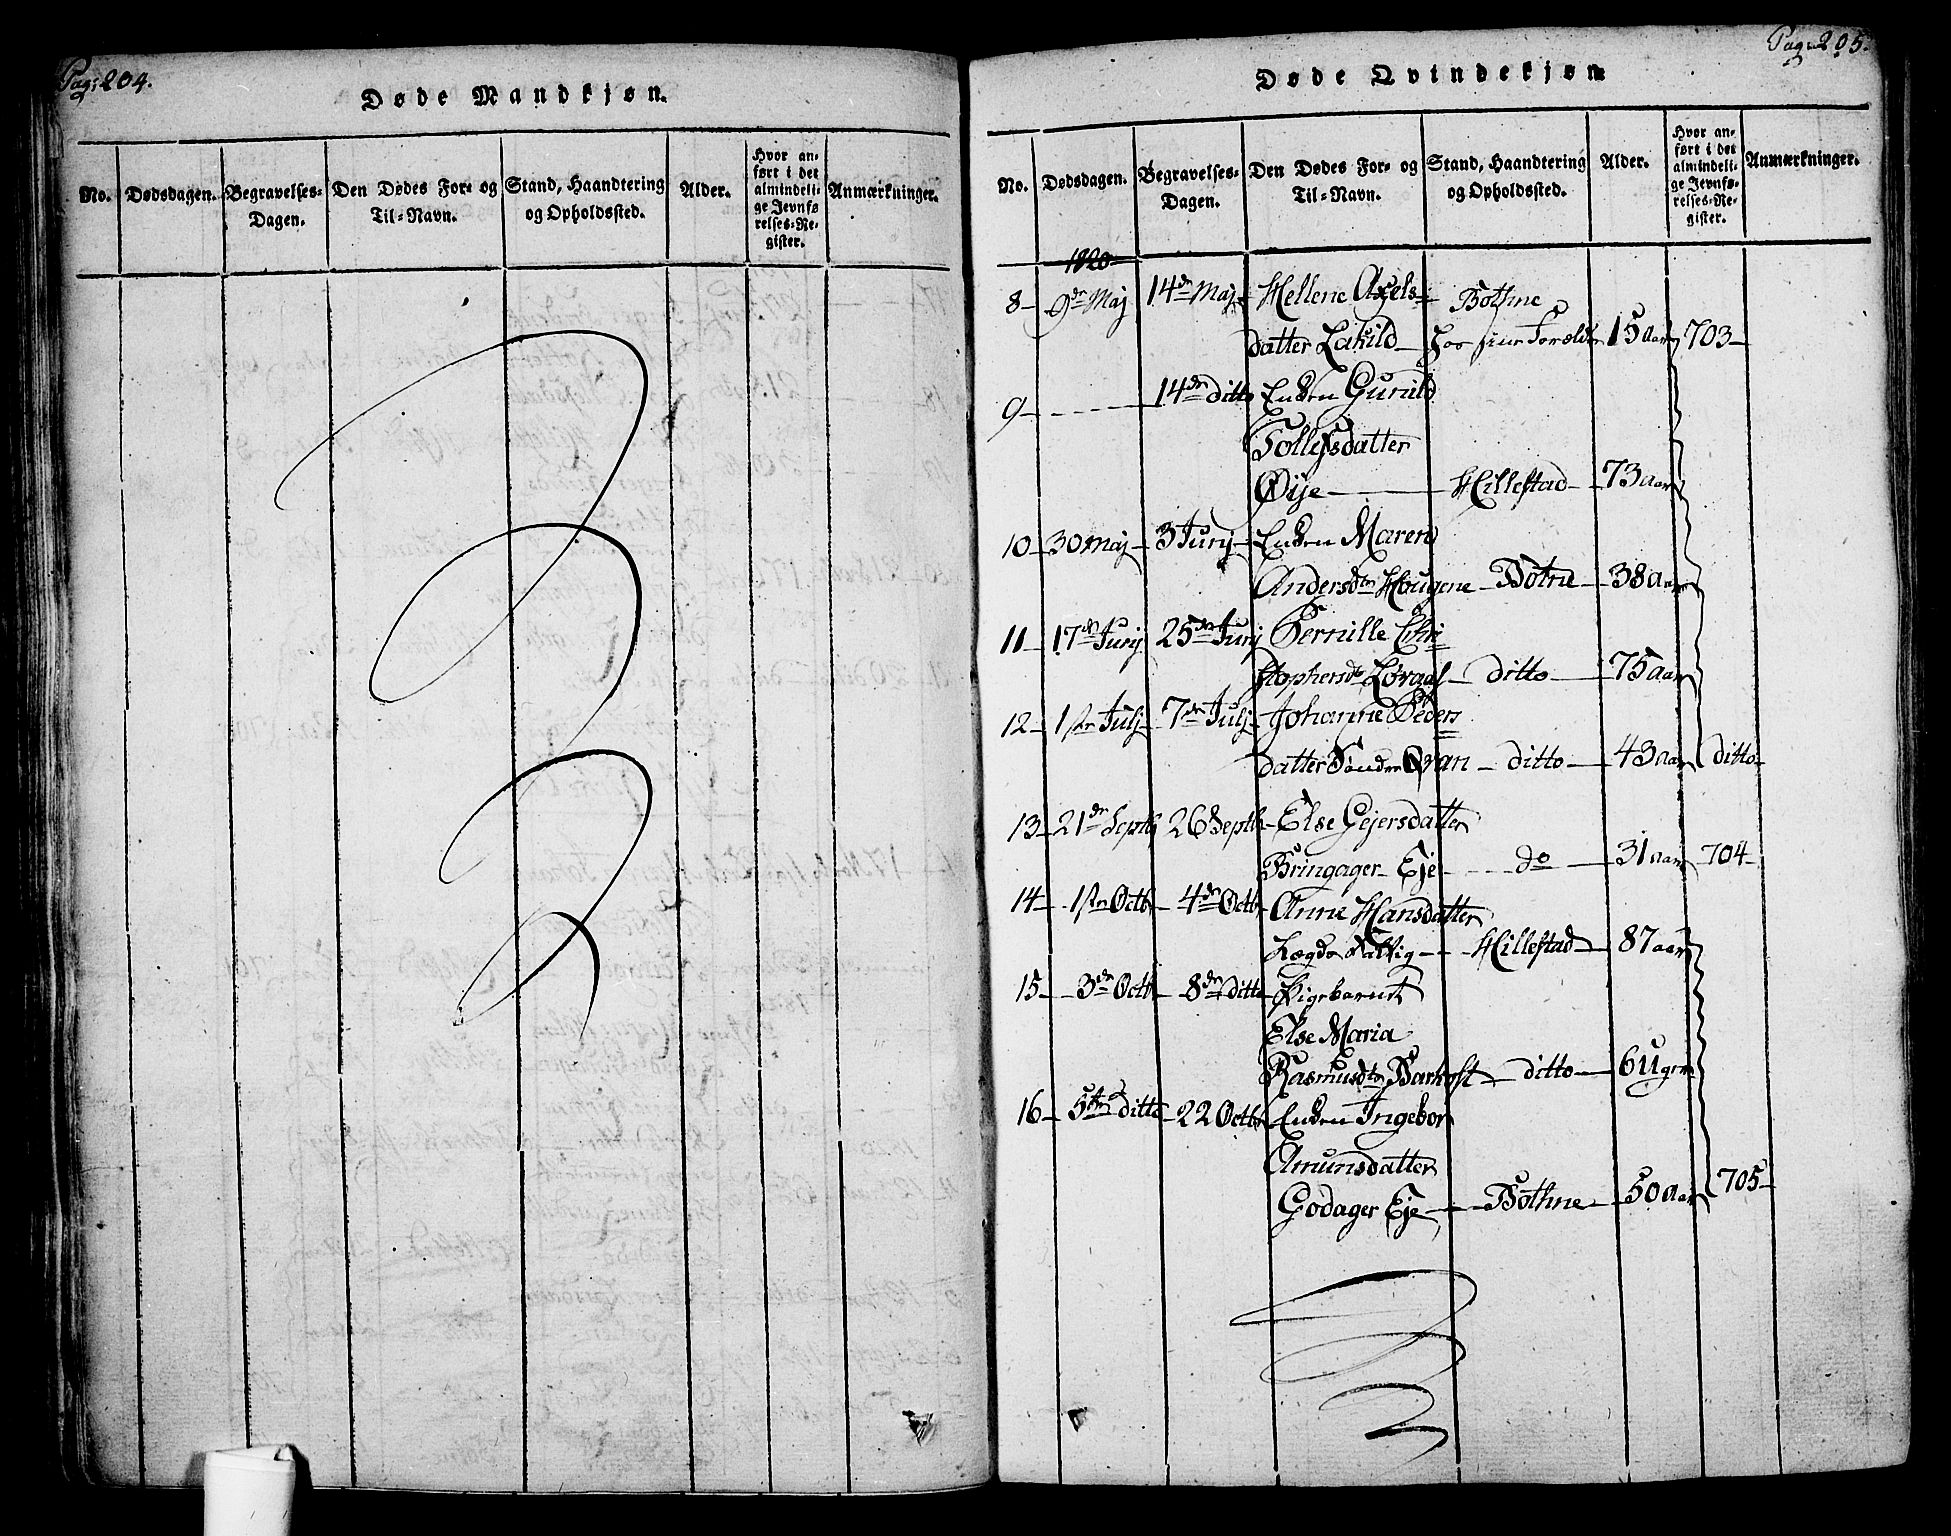 Pag: 204.
Døde Mandkjøn.
No. Dødsdagen. Begravelses-Dagen. Den Dødes For- og Til-Navn. Stand, Haandtering og Opholdssted. Alder. Hvor anført i det almindelige Jevnførelses-Register. Anmærkninger.
Pag: 205.
Døde Qvindekjøn
No. Dødsdagen. Begravelses-Dagen. Den Dødes For- og Til-Navn. Stand, Haandtering og Opholdssted. Alder. Hvor anført i det almindelige Jevnførelses-Register. Anmærkninger.
1820
8 - 9de Maj 14de Maj - Hellene Axels- Bothne
datter Lakild - hos sine Foreldre 15 Aar 703 -
9 - - - - 14de ditto Enken Gunild
Tollefsdatter
Øije - Hillestad - 73 aar
10 - 30 Maj - 3 Junij - Enken Maren
Andersdtr Hougene - Botne - 38 aar
11 - 17de Junij 25de Junij Pernille Chri-
stophersdr Løraas - ditto - 75 aar
12 - 1ster Julj - 7de Julj - Johanne Peders
datter Sønder Qvan - ditto - 43 aar ditto -
13 - 21de Septb 26 Septb - Else Gejersdatter
Bringager Eje - - - do - 31 aar 704 -
14 - 1ster Octb - 4de Octb - Anne Hansdatter
Lægds - - Hillestad - 87 aar
15 - 3de Octb - 8de ditto - Pigebarnet
Else Maria
Rasmusdtr Barkost - ditto - 6 Uger
16 - 5te ditto - 22 Octbr Enken Ingebor
Amunsdatter
Godager Eje - Bothne - 50 aar 705 -